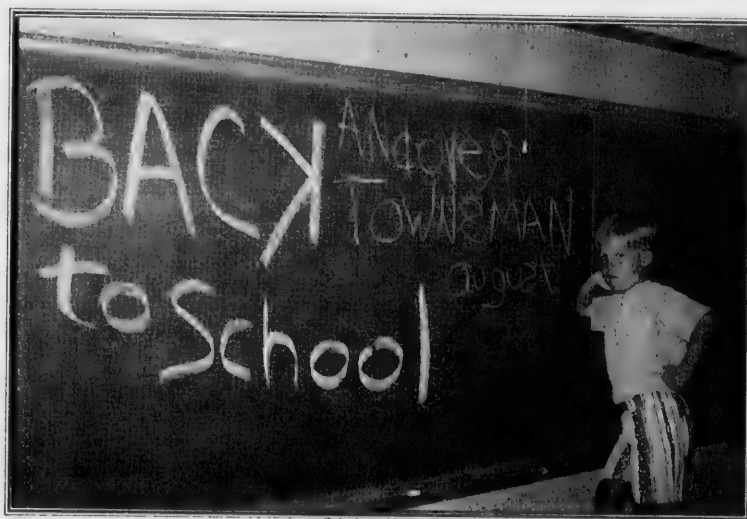 BACK
to School
ANdoveR
TOWNSMAN
august